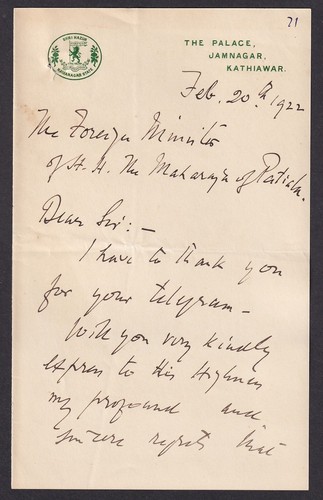 71
SHRI HAZUR
NAWANAGAR STATE
THE PALACE,
JAMNAGAR,
KATHIAWAR.
Feb. 20th 1922
The Foreign Minister
of H. H. The Maharaja of Patiala.
Dear Sir:-
I have to thank you
for your telegram-
Will you very kindly
express to His Highness
my profound and
sincere regrets that